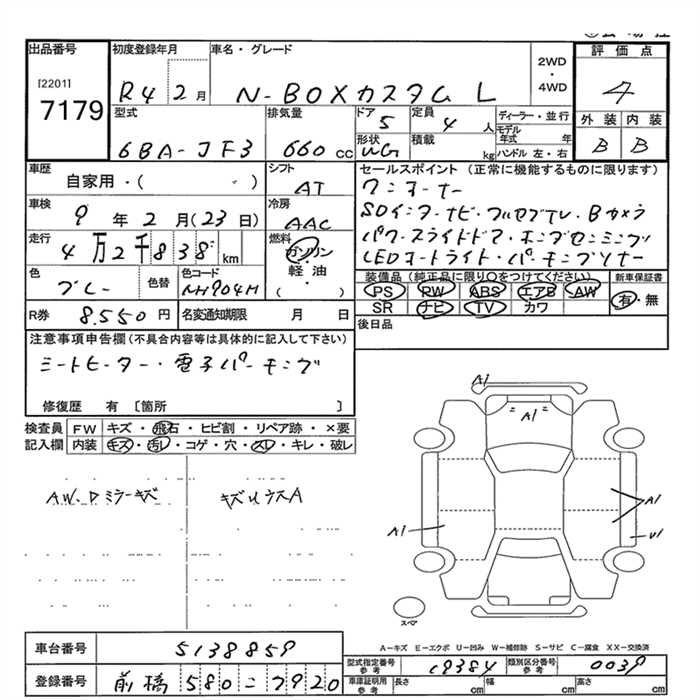 出品番号
[2201]
7179
初度登録年月
R4 2月
車名・グレード
N-BOXカスタム L
2WD
・
4WD
評価点
4
外装 内装
B B
型式
6BA-JF3
排気量
660 cc
ドア
5
定員
4 人
形状
WG
積載
kg
ディーラー・並行
モデル年式 年
ハンドル 左・右
車歴
自家用・( )
シフト
AT
車検
9 年 2 月 (23日)
冷房
AAC
走行
4万2千838 km
燃料
ガソリン
軽・油
( )
色
グレー
色替
色コード
NH904M
R券
8.550 円
名変通知期限 月 日
セールスポイント (正常に機能するものに限ります)
ワンオーナー
SDインターナビ・フルセグTV・Bカメラ
パワースライドドア・ホンダセンシング
LEDオートライト・パーキングソナー
装備品 (純正品に限り○をつけてください)
PS RW ABS エアB AW
SR ナビ TV カワ
新車保証書
有・無
後日品
注意事項申告欄 (不具合内容等は具体的に記入して下さい)
シートヒーター・電子パーキング
修復歴 有 〔箇所 〕
検査員記入欄
FW キズ・飛石・ヒビ割・リペア跡・×要
内装 キズ・汚レ・コゲ・穴・スレ・キレ・破レ
AW、Dミラーキズ
キズUウスA
A1
A1
A1
A1
U1
スペア
A－キズ E－エクボ U－凹み W－補修跡 S－サビ C－腐食 XX－交換済
車台番号
5138859
登録番号
前橋 580 に 7920
型式指定番号
参考
19384
類別区分番号
参考
0039
車庫証明用
参考
長さ cm
幅 cm
高さ cm